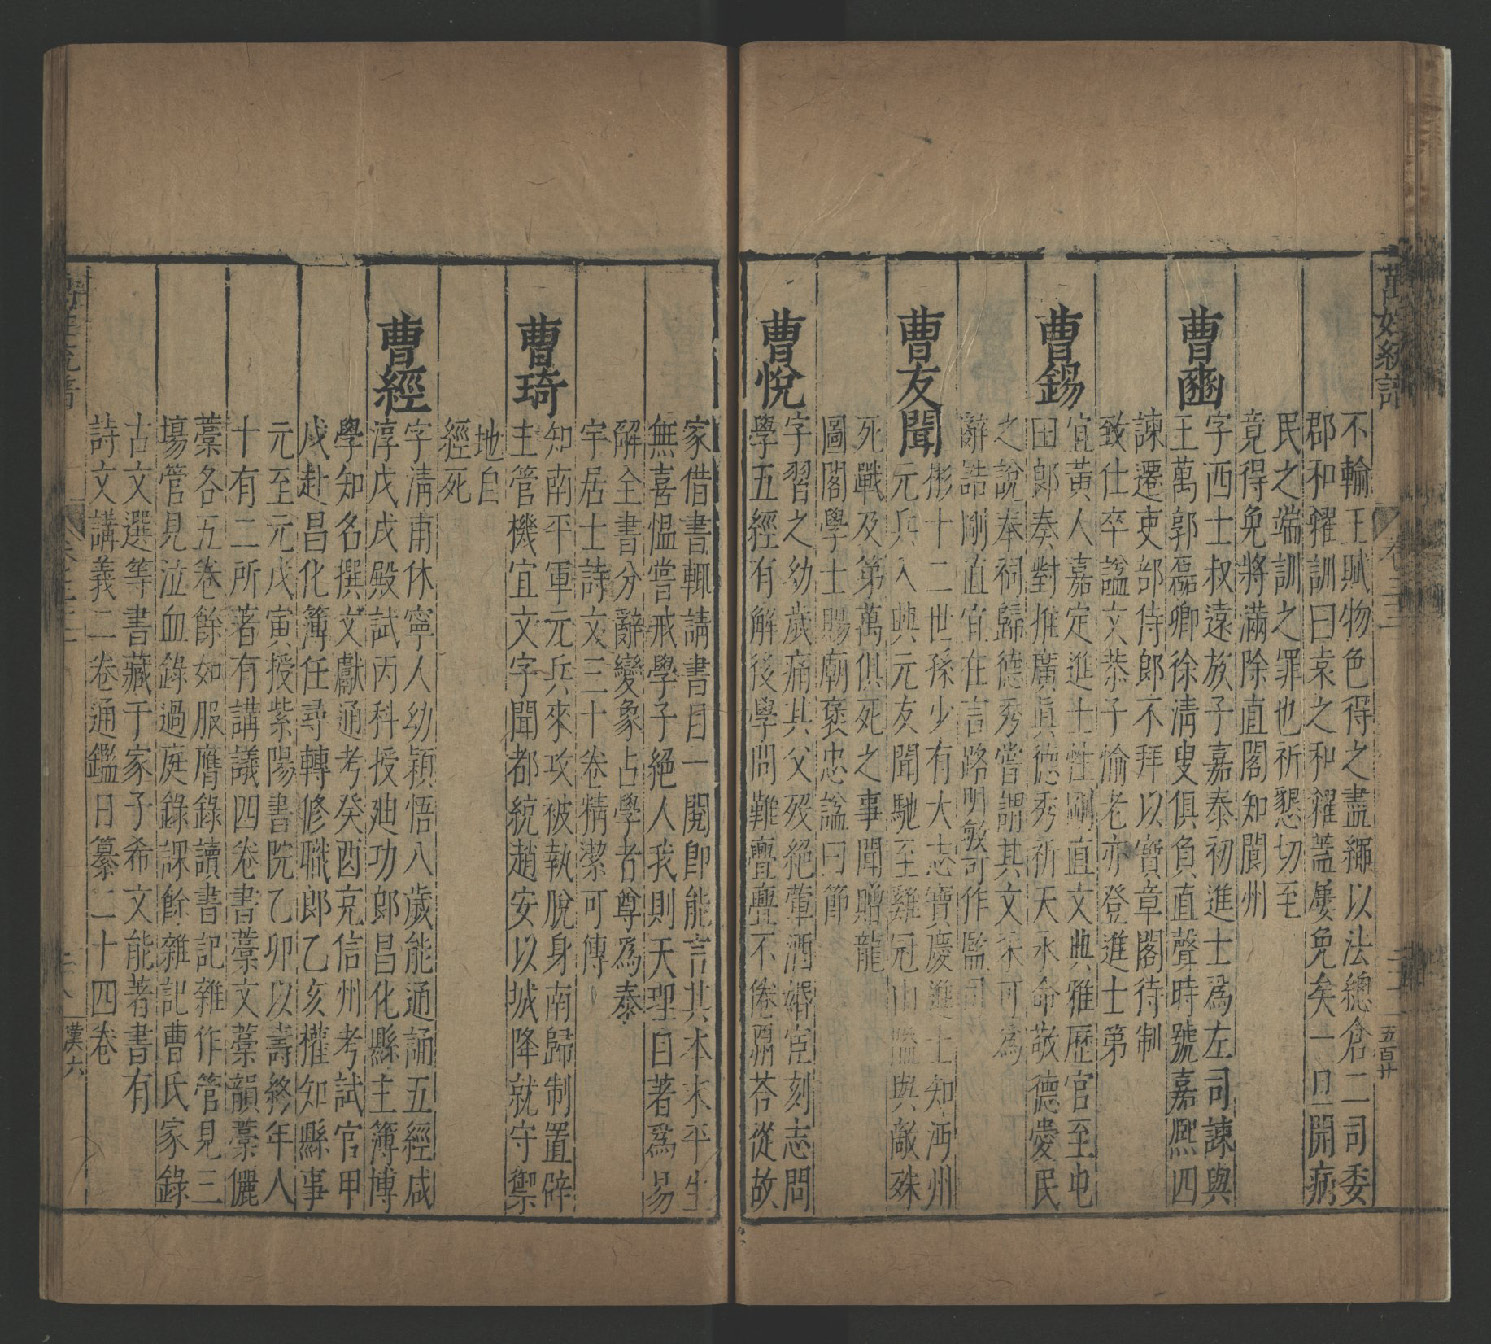 萬姓統譜
卷三三
五百廿
不輸王賦物色得之盡緷以法總倉二司委
郡和糴訓曰袁之和糴蓋屢免矣一旦開病
民之端訓之罪也祈懇切至
竟得免將滿除直閣知閬州
曹豳
字西士叔遠族子嘉泰初進士爲左司諫與
王萬郭磊卿徐清叟俱負直聲時號嘉熙四
諫遷吏部侍郎不拜以寶章閣待制
致仕卒諡文恭子愉老亦登進士第
曹錫
宜黃人嘉定進士性剛直文典雅歷官至屯
田郎奏對推廣眞德秀祈天永命敬德愛民
之說奉祠歸德秀嘗謂其文采可爲
辭誥剛直宜在言路明敏可作監司
曹友聞
彬十二世孫少有大志寶慶進士知沔州
元兵入興元友聞馳至雞冠山隘與敵殊
死戰及第萬俱死之事聞贈龍
圖閣學士賜廟褒忠諡曰節
曹悅
字習之幼歲痛其父歿絕葷酒婚宦刻志問
學五經有解後學問難亹亹不倦酬荅從故
家借書輒請書目一閱卽能言其本末平生
無喜慍嘗戒學子絕人我則天理自著爲易
解全書分辭變象占學者尊為泰
宇居士詩文三十卷精潔可傳
曹琦
知南平軍元兵來攻被執脫身南歸制置辟
主管機宜文字聞都統趙安以城降就守禦
地自
經死
曹經
字清甫休寧人幼穎悟八歲能通誦五經咸
淳戊戌殿試丙科授迪功郎昌化縣主簿博
學知名撰文獻通考癸酉充信州考試官甲
戌赴昌化簿任尋轉修職郎乙亥權知縣事
元至元戊寅授紫陽書院乙卯以壽終年八
十有二所著有講議四卷書藁文藁韻藁儷
藁各五卷餘如服膺錄讀書記雜作管見三
場管見泣血錄過庭錄課餘雜記曹氏家錄
古文選等書藏于家子希文能著書有
詩文講義二卷通鑑日纂二十四卷
漢六